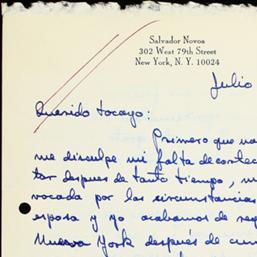 Salvador Novoa
302 West 79th Street
New York, N. Y. 10024
Julio
Querido tocayo:
Primero que na
me disculpe mi falta de cortec
tar despues de tanto tiempo, m
vocada por las circunstancias
esposa y yo acabamos de reg
Nueva York después de cum